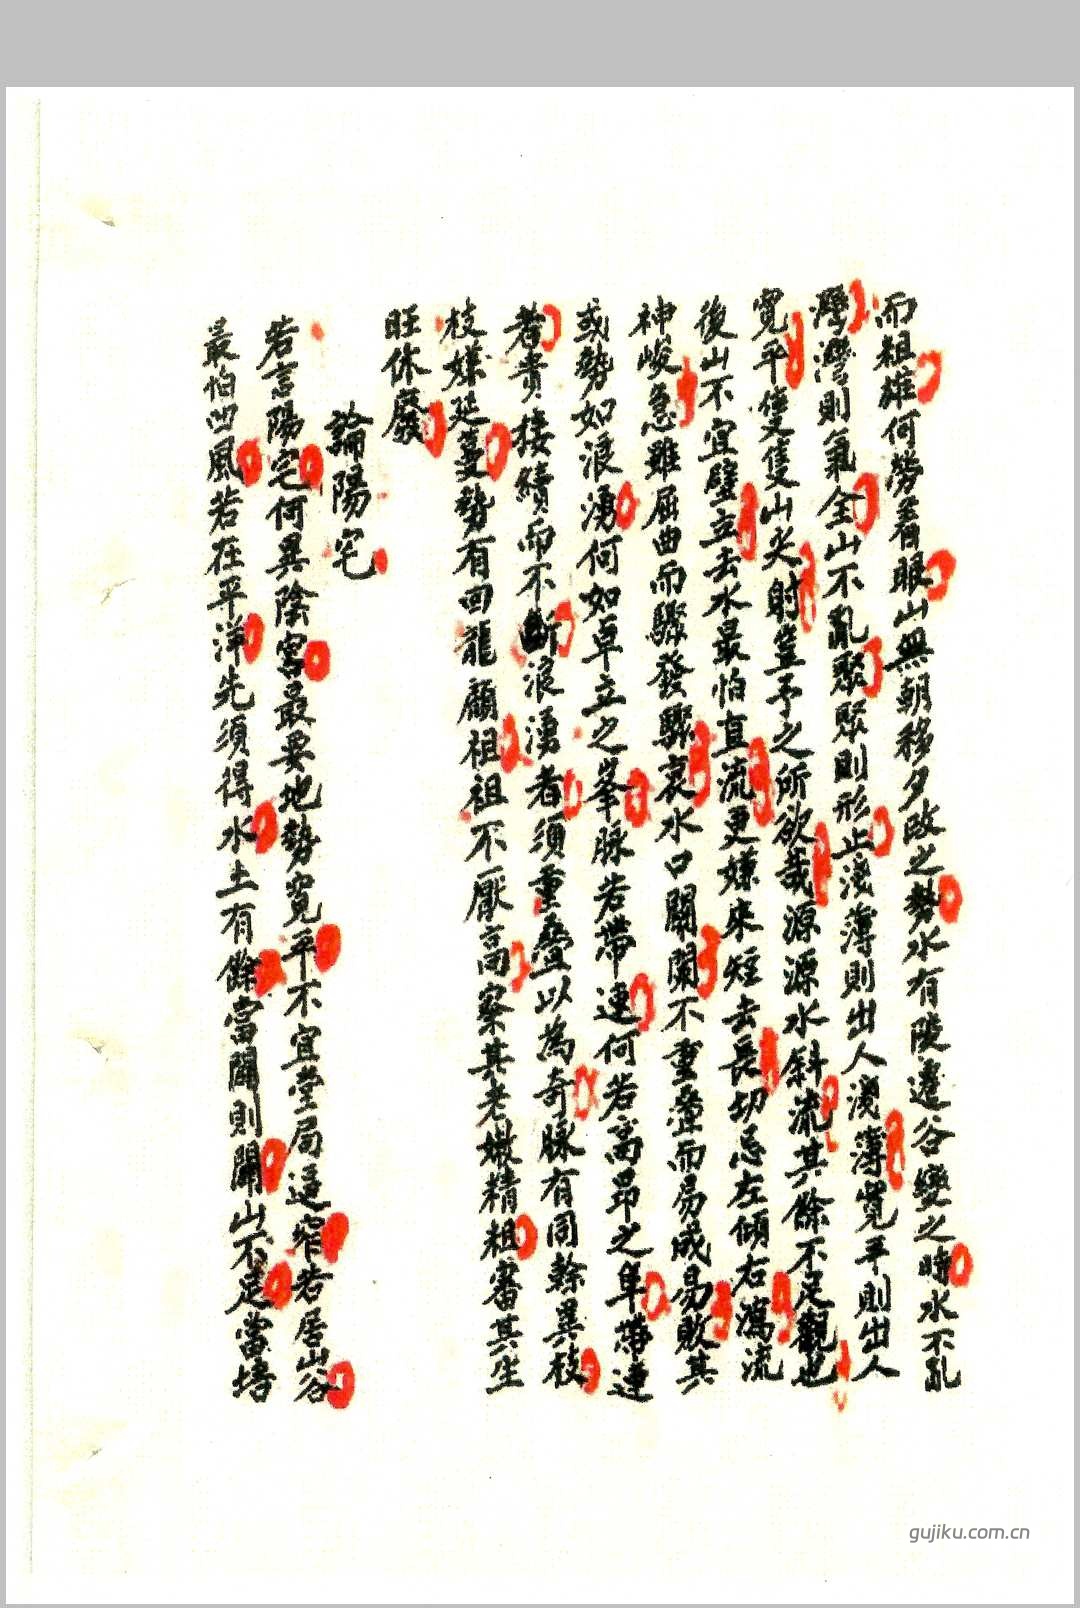 而祖雄何勞着眼山無朝移夕改之勢水有陵遷谷變之時水不亂
灣灣則氣全山不亂聚聚則形止淺薄則出人淺薄寬平則出人
寬平隻隻山尖射豈予之所欲哉源源水斜流其餘不足觀也
後山不宜壁立去水最怕直流更嫌來短去長切忌左傾右瀉流
神峻急雖屈曲而驟發驟衰水口關闌不重疊而易成易敗其
或勢如浪湧何如卓立之峯脉若帶連何若高昂之阜帶連
者貴接續而不斷浪湧者須重疊以為奇脉有同幹異枝
枝嫌延蔓勢有回龍顧祖祖不厭高察其老嫩精粗審其生
旺休廢
論陽宅
若言陽宅何異陰宮最要地勢寬平不宜堂局逼窄若居山谷
最怕凹風若在平洋先須得水土有餘當闢則闢山不足當培
gujiku.com.cn